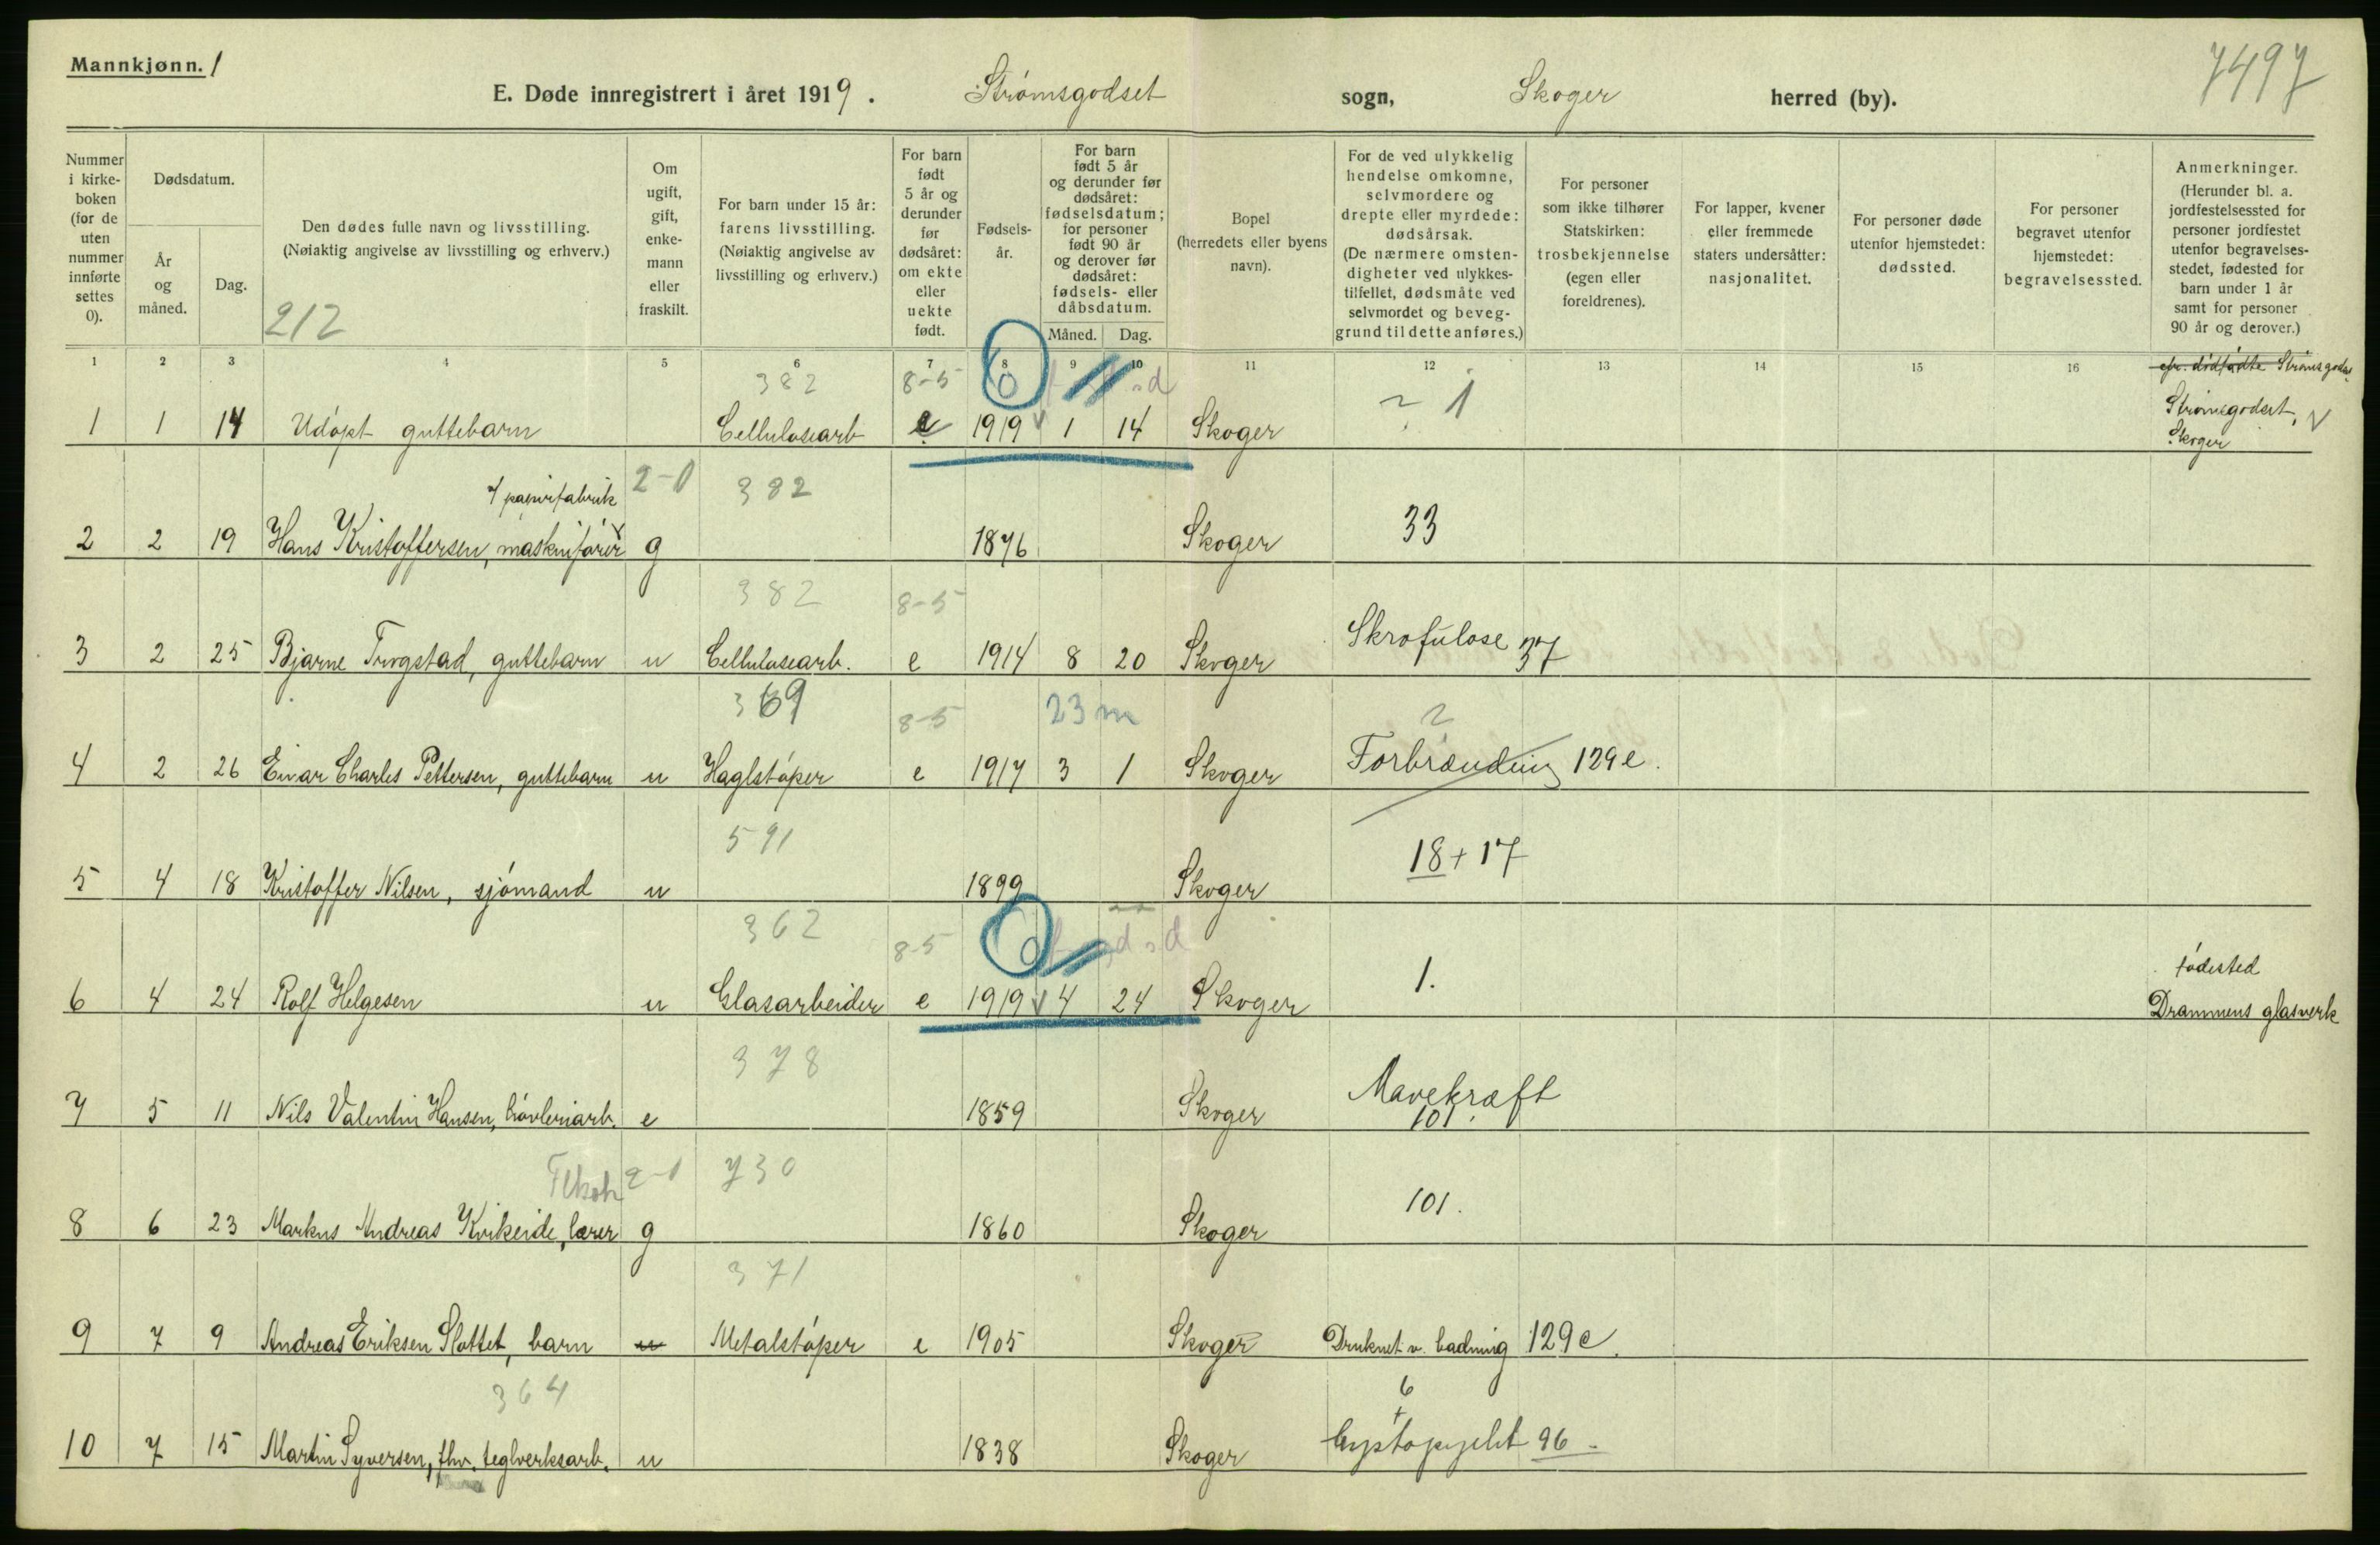 Mannkjønn. 1
E. Døde innregistrert i året 1919. Strømsgodset sogn, Skoger herred (by).
7497
Nummer i kirke- boken (for de uten nummer innførte settes 0).
Dødsdatum.
År og måned.
Dag.
Den dødes fulle navn og livsstilling.
(Nøiaktig angivelse av livsstilling og erhverv.)
212
Om ugift, gift, enke- mann eller fraskilt.
For barn under 15 år: farens livsstilling. (Nøiaktig angivelse av livsstilling og erhverv.)
For barn født 5 år og derunder før dødsåret: om ekte eller uekte født.
Fødsels- år.
For barn født 5 år og derunder før dødsåret: fødselsdatum; for personer født 90 år og derover før dødsåret: fødsels- eller dåbsdatum.
Måned. Dag.
Bopel (herredets eller byens navn).
For de ved ulykkelig hendelse omkomne, selvmordere og drepte eller myrdede: dødsårsak. (De nærmere omsten- digheter ved ulykkes- tilfellet, dødsmåte ved selvmordet og beveg- grund til dette anføres.)
For personer som ikke tilhører Statskirken: trosbekjennelse (egen eller foreldrenes).
For lapper, kvener eller fremmede staters undersåtter: nasjonalitet.
For personer døde utenfor hjemstedet: dødssted.
For personer begravet utenfor hjemstedet: begravelsessted.
Anmerkninger. (Herunder bl. a. jordfestelsessted for personer jordfestet utenfor begravelses- stedet, fødested for barn under 1 år samt for personer 90 år og derover.)
1 2 3 4 5 6 7 8 9 10 11 12 13 14 15 16
382 8-5 0 d
dødfødte Strømsgodset
1 1 14 Udøpt guttebarn Cellulosearb e 1919 1 14 Skoger 1 Strømsgodset, Skoger
papirfabrik 2-1 382
2 2 19 Hans Kristoffersen, maskinfører g 1876 Skoger 33
382 8-5
3 2 25 Bjarne Trogstad, guttebarn u Cellulosearb. e 1914 8 20 Skoger Skrofulose 37
369 8-5 23 m
4 2 26 Einar Charles Pettersen, guttebarn u Haglstøper e 1917 3 1 Skoger Forbrænding 129 e.
591
5 4 18 Kristoffer Nilsen, sjømand u 1899 Skoger 18 + 17
362 8-5 0 d
6 4 24 Rolf Helgesen u Glasarbeider e 1919 4 24 Skoger 1. fødested Drammens glasverk
378
7 5 11 Nils Valentin Hansen, høvleriarb. e 1859 Skoger Mavekræft 101.
2-1 730
8 6 23 Markus Andreas Kvikeide, lærer g 1860 Skoger 101.
371
9 7 9 Andreas Eriksen Slottet, barn u Metalstøper e 1905 Skoger Druknet v. badning 129 c.
364 6 +
10 7 15 Martin Syversen, fhv. teglverksarb. u 1838 Skoger 96